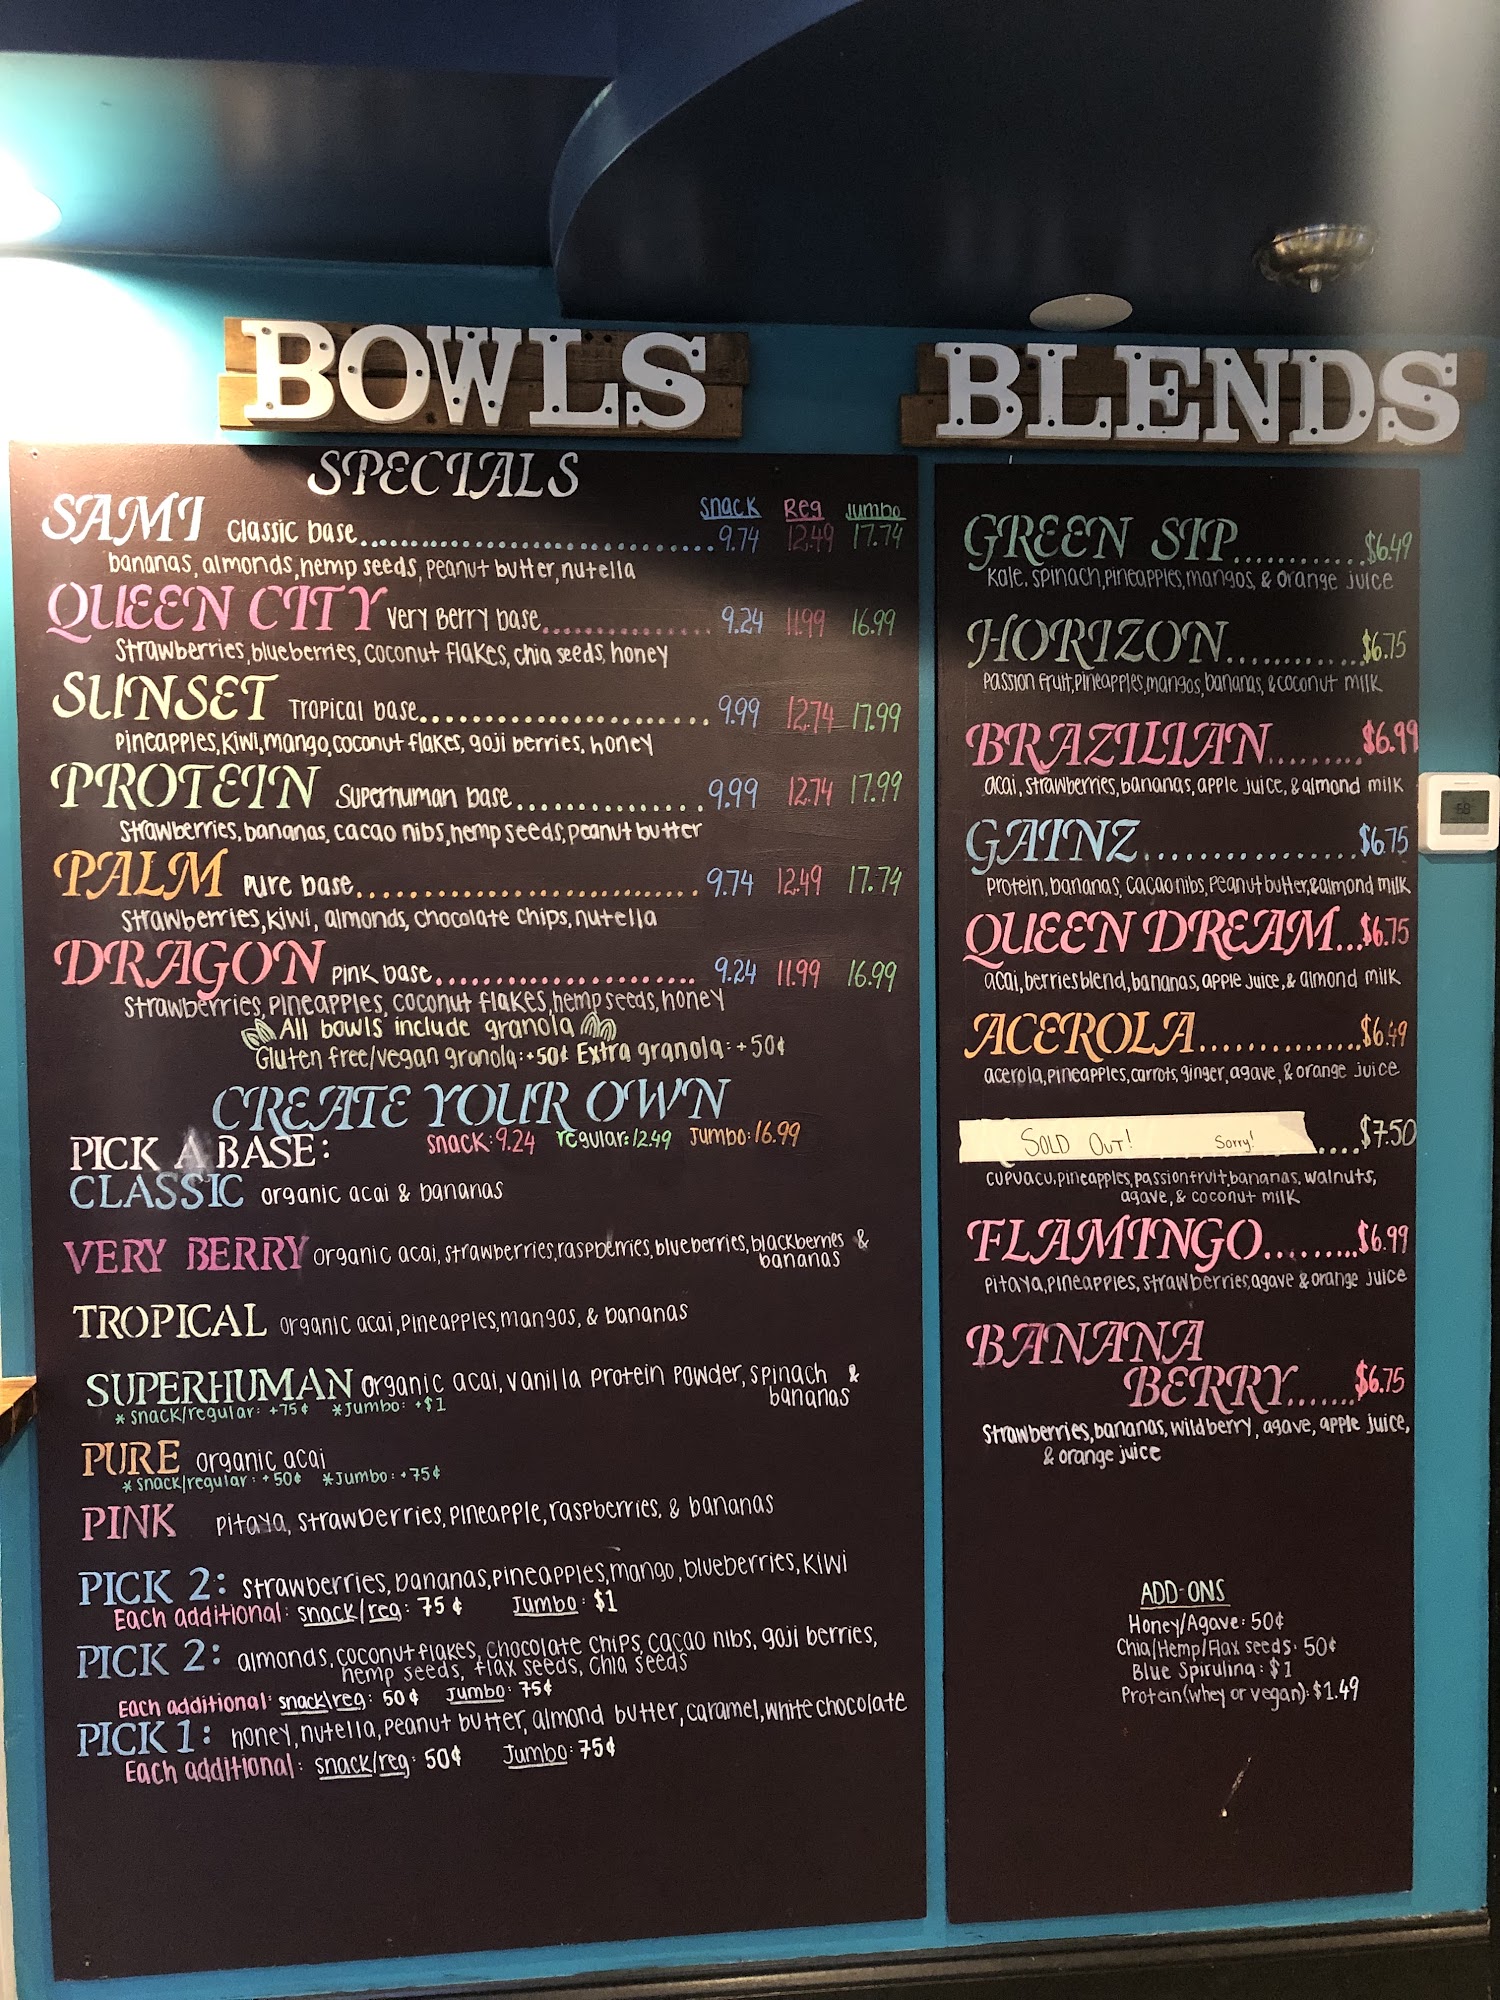 BOWLS
SPECIALS
snack Reg Jumbo
SAMI Classic base 9.74 12.49 17.74
bananas, almonds, hemp seeds, peanut butter, nutella
QUEEN CITY Very Berry base 9.24 11.99 16.99
Strawberries, blueberries, coconut flakes, chia seeds, honey
SUNSET Tropical base 9.99 12.74 17.99
Pineapples, Kiwi, mango, coconut flakes, goji berries, honey
PROTEIN Superhuman base 9.99 12.74 17.99
Strawberries, bananas, cacao nibs, hemp seeds, peanut butter
PALM Pure base 9.74 12.49 17.74
Strawberries, Kiwi, almonds, chocolate chips, nutella
DRAGON Pink base 9.24 11.99 16.99
Strawberries, Pineapples, coconut flakes, hemp seeds, honey
All bowls include granola
Gluten free/vegan granola: +50¢ Extra granola: +50¢
CREATE YOUR OWN
PICK A BASE: snack: 9.24 regular: 12.49 Jumbo: 16.99
CLASSIC organic acai & bananas
VERY BERRY organic acai, strawberries, raspberries, blueberries, blackberries &
bananas
TROPICAL organic acai, Pineapples, mangos, & bananas
SUPERHUMAN organic acai, vanilla Protein Powder, spinach &
bananas
* snack/regular: +75¢ * Jumbo: +$1
PURE organic acai
* snack/regular: +50¢ * Jumbo: +75¢
PINK Pitaya, strawberries, Pineapple, raspberries, & bananas
PICK 2: strawberries, bananas, pineapples, mango, blueberries, Kiwi
Each additional: snack/reg: 75¢ Jumbo: $1
PICK 2: almonds, coconut flakes, chocolate chips, cacao nibs, goji berries,
hemp seeds, flax seeds, chia seeds
Each additional: snack/reg: 50¢ Jumbo: 75¢
PICK 1: honey, nutella, Peanut butter, almond butter, caramel, white chocolate
Each additional: snack/reg: 50¢ Jumbo: 75¢
BLENDS
GREEN SIP $6.49
Kale, spinach, pineapples, mangos, & orange juice
HORIZON $6.75
Passion fruit, Pineapples, mangos, bananas, & coconut milk
BRAZILIAN $6.99
acai, strawberries, bananas, apple juice, & almond milk
GAINZ $6.75
Protein, bananas, Cacao nibs, Peanut butter, & almond milk
QUEEN DREAM $6.75
acai, berries blend, bananas, apple juice, & almond milk
ACEROLA $6.49
acerola, pineapples, carrots, ginger, agave, & orange juice
SOLD OUT! Sorry! $7.50
cupuacu, pineapples, passion fruit, bananas, walnuts,
agave, & coconut milk
FLAMINGO $6.99
Pitaya, Pineapples, strawberries, agave & orange juice
BANANA
BERRY $6.75
Strawberries, bananas, wild berry, agave, apple juice,
& orange juice
ADD-ONS
Honey/Agave: 50¢
Chia/Hemp/Flax seeds: 50¢
Blue Spirulina: $1
Protein (whey or vegan): $1.49
68